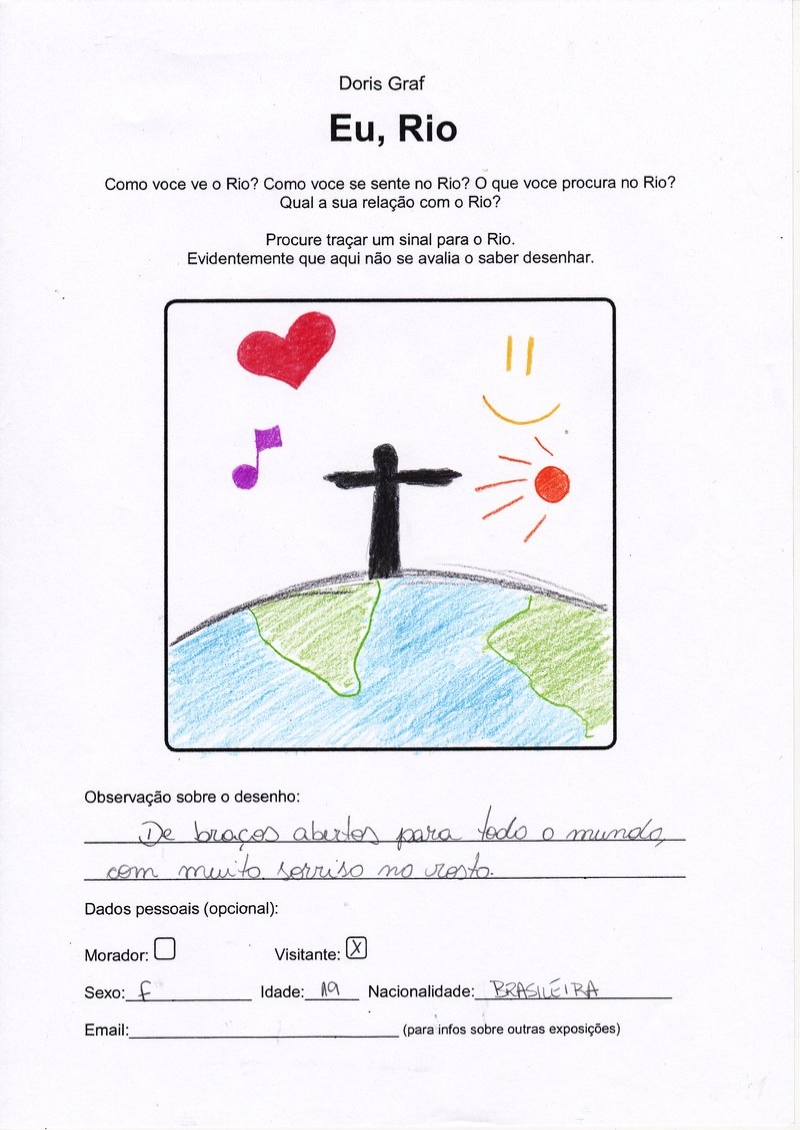 Doris Graf
Eu, Rio
Como voce ve o Rio? Como voce se sente no Rio? O que voce procura no Rio?
Qual a sua relação com o Rio?
Procure traçar um sinal para o Rio.
Evidentemente que aqui não se avalia o saber desenhar.
Observação sobre o desenho:
De braços abertos para todo o mundo,
com muito sorriso no rosto.
Dados pessoais (opcional):
Morador: Visitante: X
Sexo: f Idade: 19 Nacionalidade: BRASILEIRA
Email: (para infos sobre outras exposições)